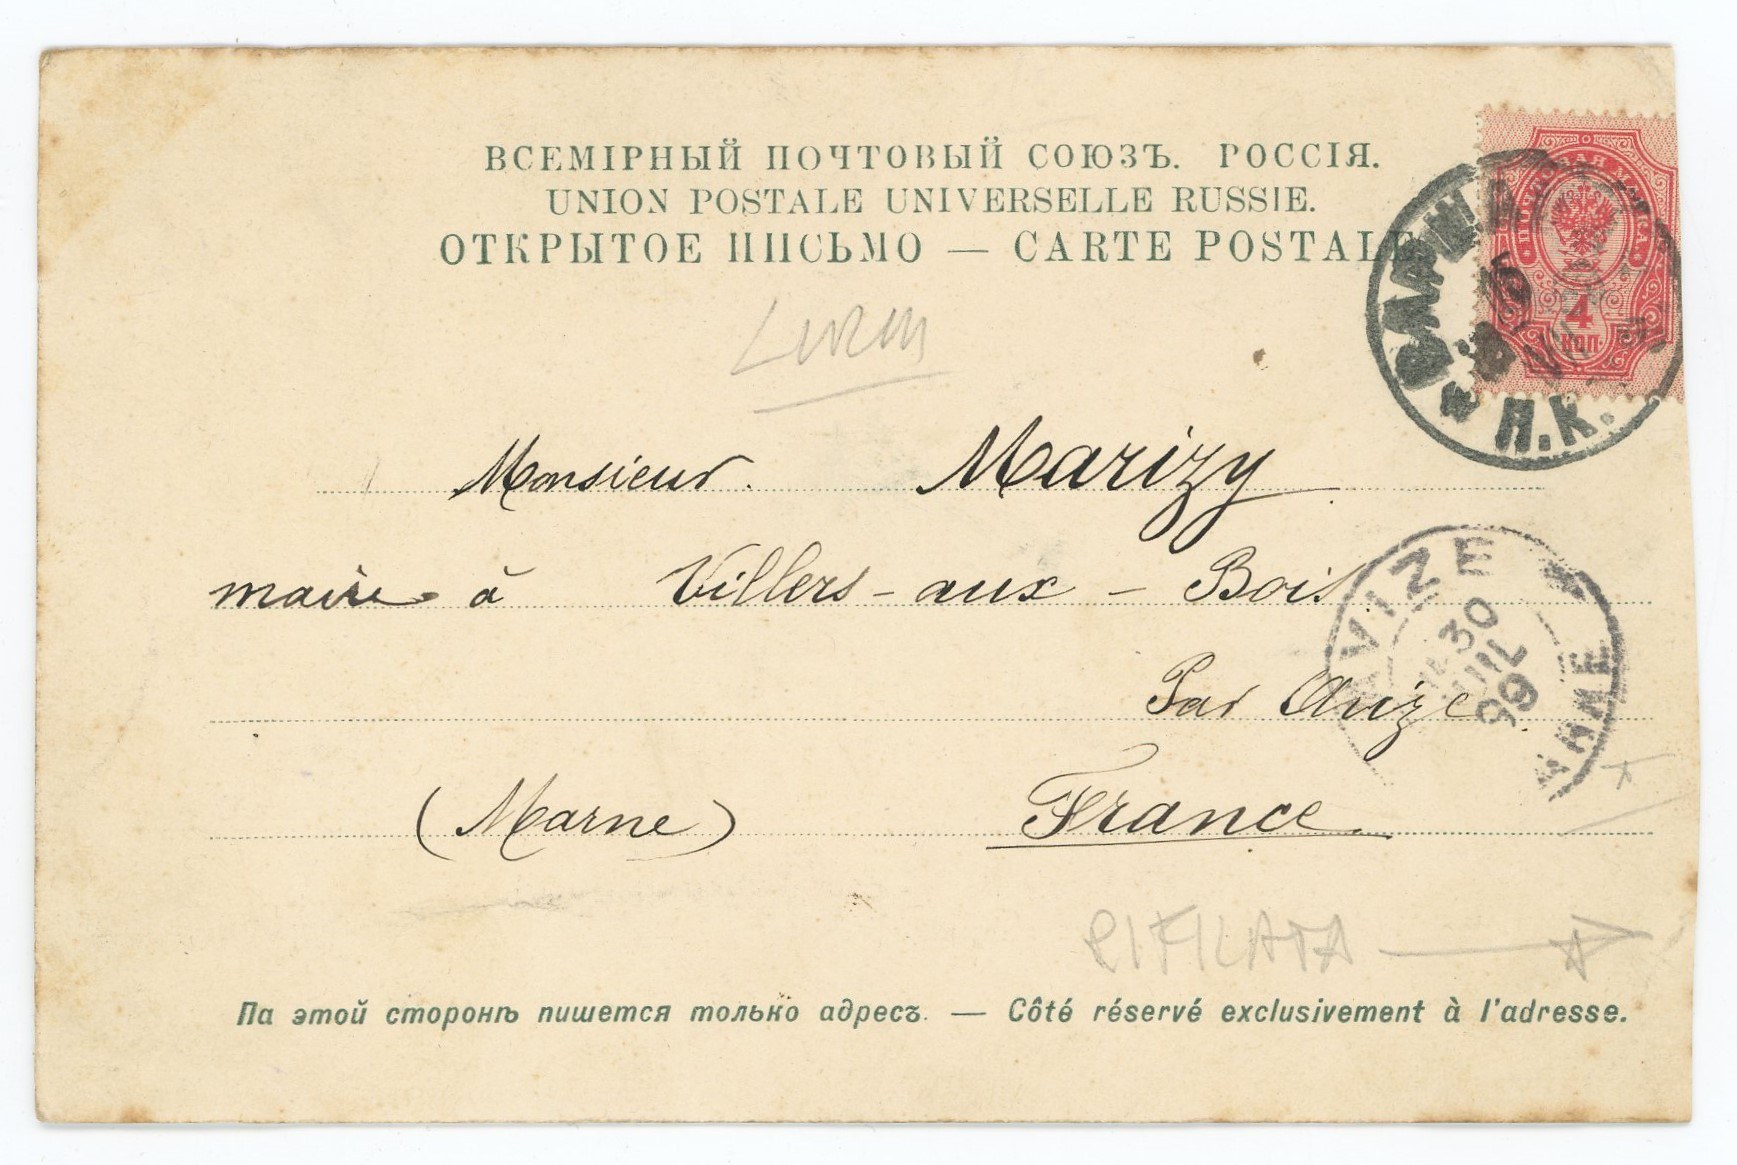 ВСЕМІРНЫЙ ПОЧТОВЫЙ СОЮЗЪ. РОССІЯ.
UNION POSTALE UNIVERSELLE RUSSIE.
ОТКРЫТОЕ ПИСЬМО — CARTE POSTALE
ПОЧТОВАЯ МАРКА
4
КОП.
ВАРШАВА
Monsieur Marizy
maire à Villers-aux-Bois
AVIZE
30
JUIL
99
MARNE
Par Avize
(Marne) France
RIFILATA
На этой сторонѣ пишется только адресъ. — Côté réservé exclusivement à l'adresse.